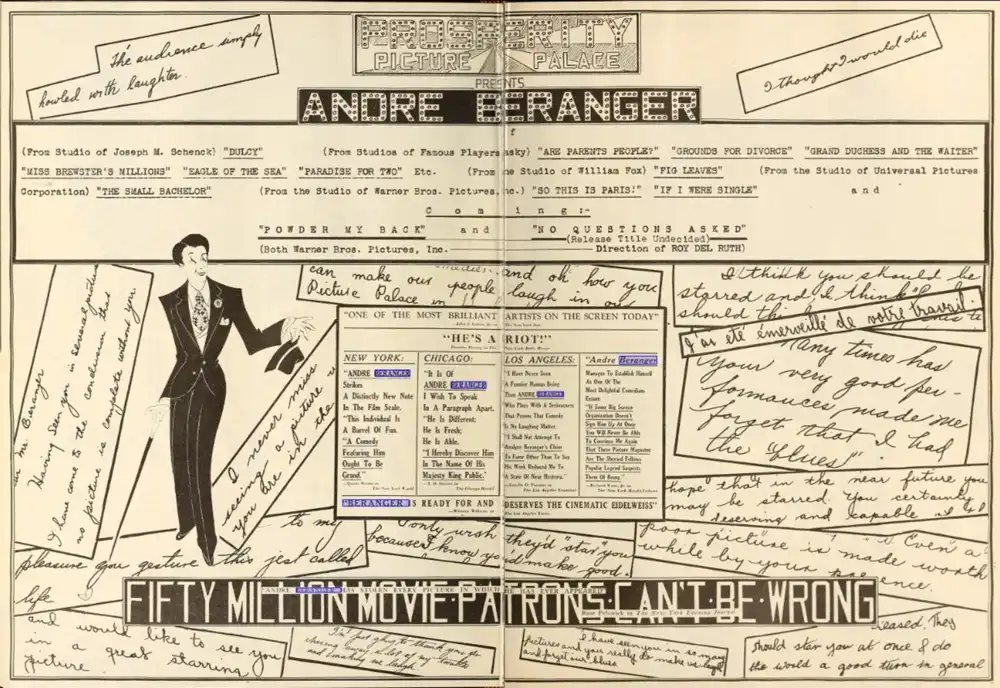 The audience simply
howled with laughter.
PROSPERITY
PICTURE PALACE
PRESENTS
ANDRE BERANGER
I thought I would die
(From Studio of Joseph M. Schenck) "DULCY" (From Studios of Famous Players asky) "ARE PARENTS PEOPLE?" "GROUNDS FOR DIVORCE" "GRAND DUCHESS AND THE WAITER"
"MISS BREWSTER'S MILLIONS" "EAGLE OF THE SEA" "PARADISE FOR TWO" Etc. (From the Studio of William Fox) "FIG LEAVES" (From the Studio of Universal Pictures
Corporation) "THE SMALL BACHELOR" (From the Studio of Warner Bros. Pictures, Inc.) "SO THIS IS PARIS!" "IF I WERE SINGLE" and
Coming:-
"POWDER MY BACK" and "NO QUESTIONS ASKED"
(Release Title Undecided)
(Both Warner Bros. Pictures, Inc. Direction of ROY DEL RUTH)
Mr. Beranger
Having seen you in several pictures
I have come to the conclusion that
no picture is complete without you.
I never miss
seeing a picture
you are in the
can make our people laugh in our
and oh how you
Picture Palace in
I think you should be
starred and I think
should the
J'ai été émerveillé de votre travail.
Many times has
your very good per-
formances made me
forget that I had
the "blues"
hope that in the near future you
may be starred. You certainly
deserving and capable
"ONE OF THE MOST BRILLIANT ARTISTS ON THE SCREEN TODAY"
"HE'S A RIOT!"
NEW YORK:
"ANDRE BERANGER
Strikes
A Distinctly New Note
In The Film Scale.
"This Individual Is
A Barrel Of Fun.
"A Comedy
Featuring Him
Ought To Be
Grand."
The New York World
CHICAGO:
"It Is Of
ANDRE BERANGER
I Wish To Speak
In A Paragraph Apart.
"He Is Different;
He Is Fresh;
He Is Able.
"I Hereby Discover Him
In The Name Of His
Majesty King Public."
The Chicago Herald
LOS ANGELES:
"I Have Never Seen
A Funnier Human Being
Than ANDRE BERANGER
Who Plays With A Seriousness
That Proves That Comedy
Is No Laughing Matter.
"I Shall Not Attempt To
Analyze Beranger's Claim
To Fame Other Than To Say
His Work Reduced Me To
A State Of Near Hysteria."
The Los Angeles Examiner
"Andre Beranger
Manages To Establish Himself
As One Of The
Most Delightful Comedians
Extant.
"If Some Big Screen
Organization Doesn't
Sign Him Up At Once
You Will Never Be Able
To Convince Me Again
That These Picture Magnates
Are The Shrewd Fellows
Popular Legend Suspects
Them Of Being."
The New York Herald-Tribune
"BERANGER IS READY FOR AND DESERVES THE CINEMATIC EIDELWEISS"
The Los Angeles Times
to my
pleasure you gesture this jest called
life
I only wish they'd "star" you
because I know you'd make good.
"Even" a
poor picture is made worth
while by your presence.
"ANDRE BERANGER HAS STOLEN EVERY PICTURE IN WHICH HE HAS EVER APPEARED"
FIFTY MILLION MOVIE·PATRONS·CAN'T·BE·WRONG
and would like to see you
in a great starring
picture
I'm just glad to thank you for
chasing away a lot of my
and making me laugh.
I have seen you in so many
pictures and you really do make us laugh
and forget our blues
eased. They
should star you at once & do
the world a good turn in general